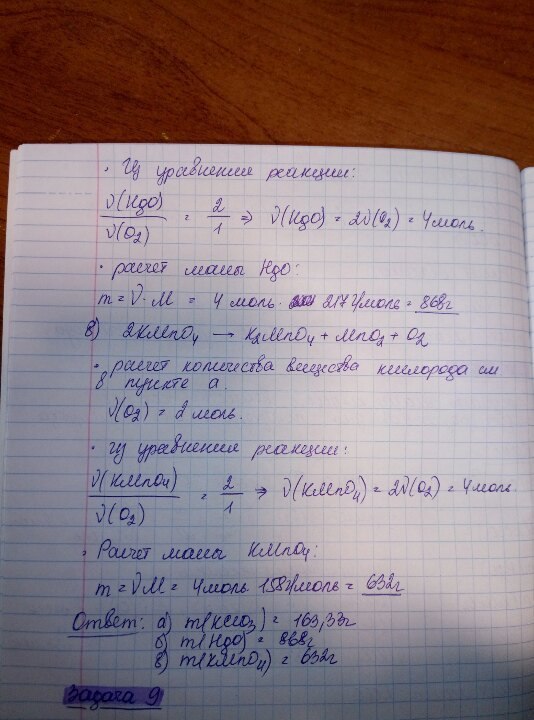 · Из уравнения реакции:
ν(HgO)/ν(O₂) = 2/1 ⇒ ν(HgO) = 2ν(O₂) = 4 моль.
· расчет массы HgO:
m = ν·M = 4 моль · 217 г/моль = 868г
в) 2KMnO₄ → K₂MnO₄ + MnO₂ + O₂
· расчет количества вещества кислорода см
в пункте а.
ν(O₂) = 2 моль.
· Из уравнения реакции:
ν(KMnO₄)/ν(O₂) = 2/1 ⇒ ν(KMnO₄) = 2ν(O₂) = 4 моль
· Расчет массы KMnO₄:
m = νM = 4 моль · 158 г/моль = 632г
Ответ: а) m(KClO₃) = 163,33г
б) m(HgO) = 868г
в) m(KMnO₄) = 632г
Задача 9